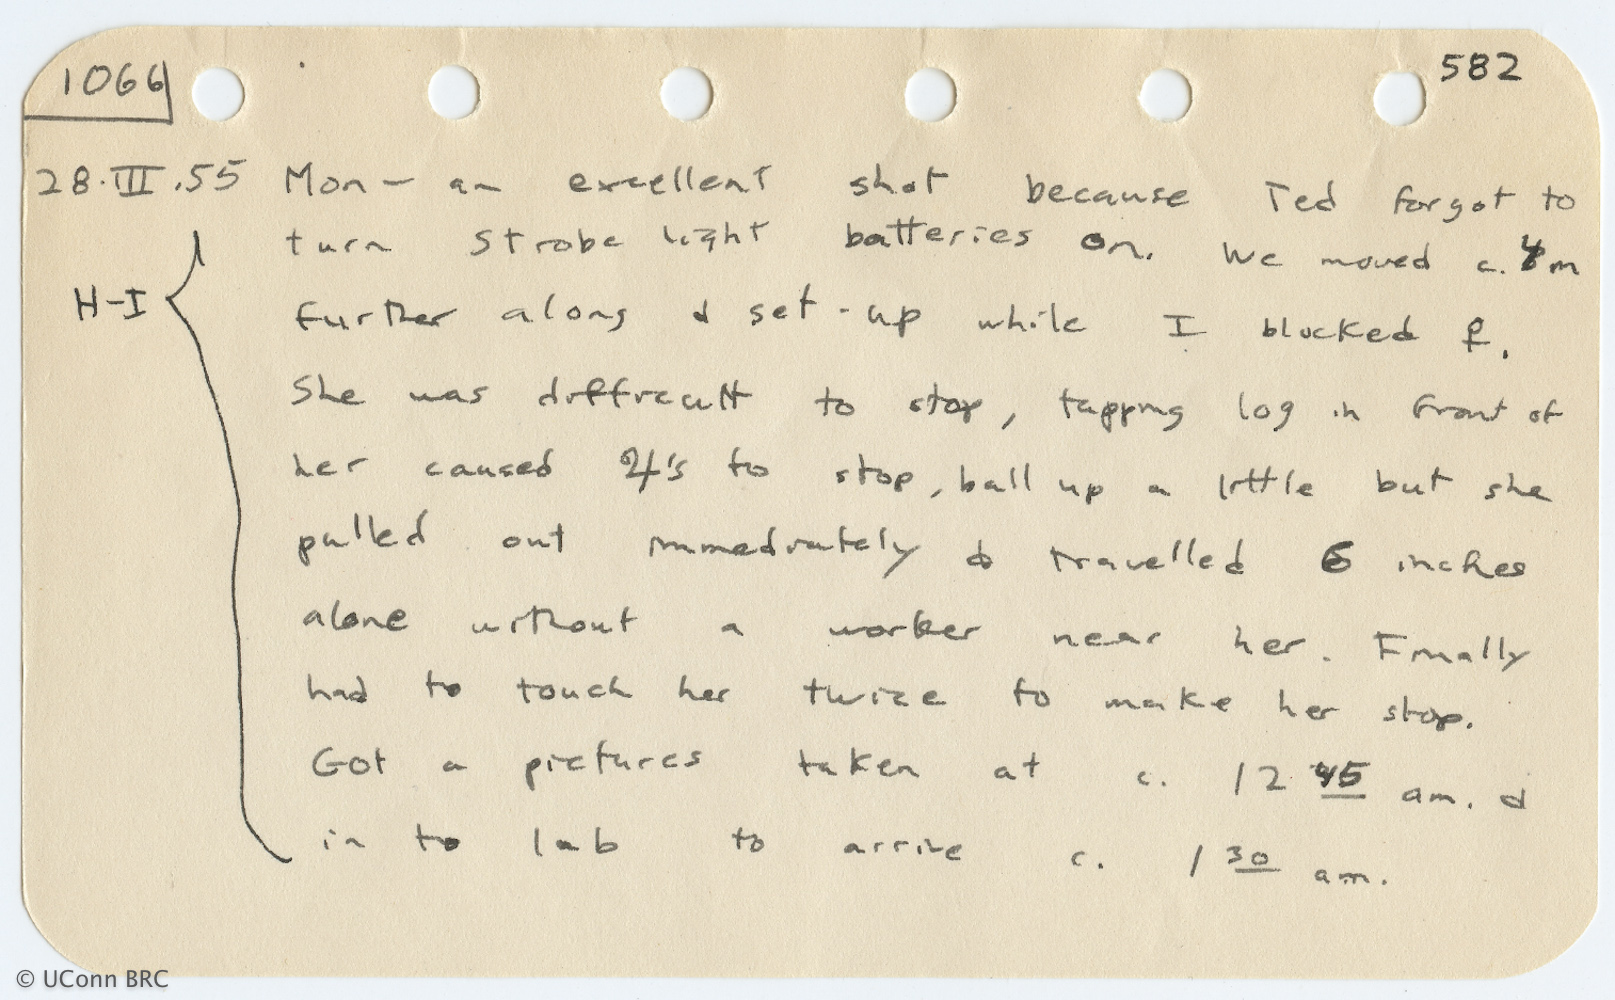 1066
582
28.III.55 Mon - an excellent shot because Ted forgot to
turn strobe light batteries on. We moved c. 4m
H-I
further along & set-up while I blocked ♀.
She was difficult to stop, tapping log in front of
her caused ☿'s to stop, ball up a little but she
pulled out immediately & travelled 6 inches
alone without a worker near her. Finally
had to touch her twice to make her stop.
Got a pictures taken at c. 12 45 am. &
in to lab to arrive c. 1 30 am.
© UConn BRC